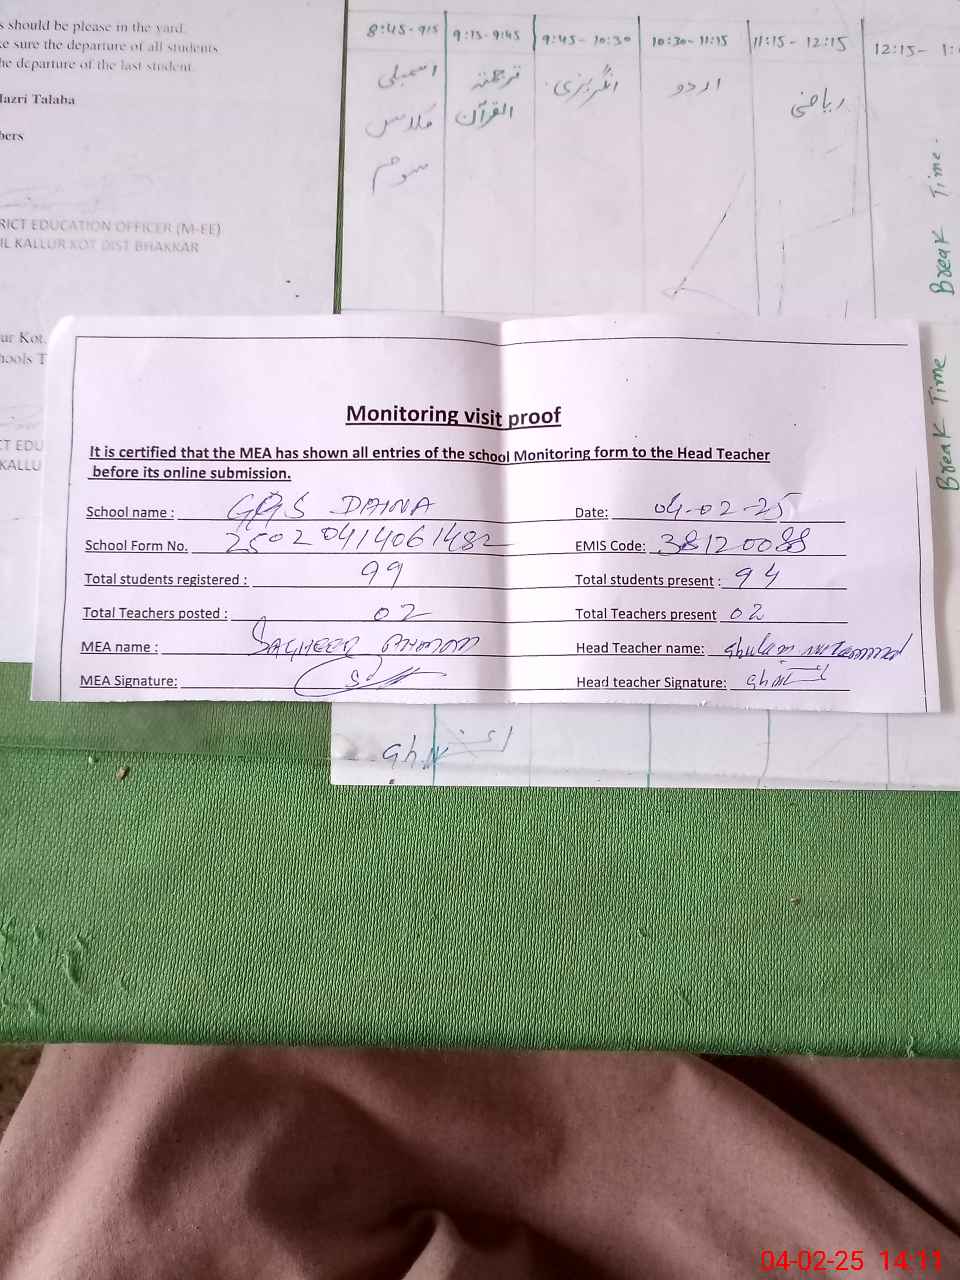 s should be please in the yard.
ke sure the departure of all students
he departure of the last student.
Hazri Talaba
bers
RICT EDUCATION OFFICER (M-EE)
IL KALLUR KOT DIST BHAKKAR
ur Kot.
hools T
CT EDU
KALLU
8:45-9:15 9:15-9:45 9:45-10:30 10:30-11:15 11:15-12:15 12:15-1:
اسمبلی ترجمتہ انگریزی اردو ریاضی
کلاس القرآن
سوم
Break Time.
Break Time
Monitoring visit proof
It is certified that the MEA has shown all entries of the school Monitoring form to the Head Teacher
before its online submission.
School name : DAINA Date: 04-02-25
School Form No. 25020414061482 EMIS Code: 38120088
Total students registered : 99 Total students present : 94
Total Teachers posted : 02 Total Teachers present 02
MEA name : SAGHEER AHMAD Head Teacher name: Ghulam
MEA Signature: Head teacher Signature:
04-02-25 14:11